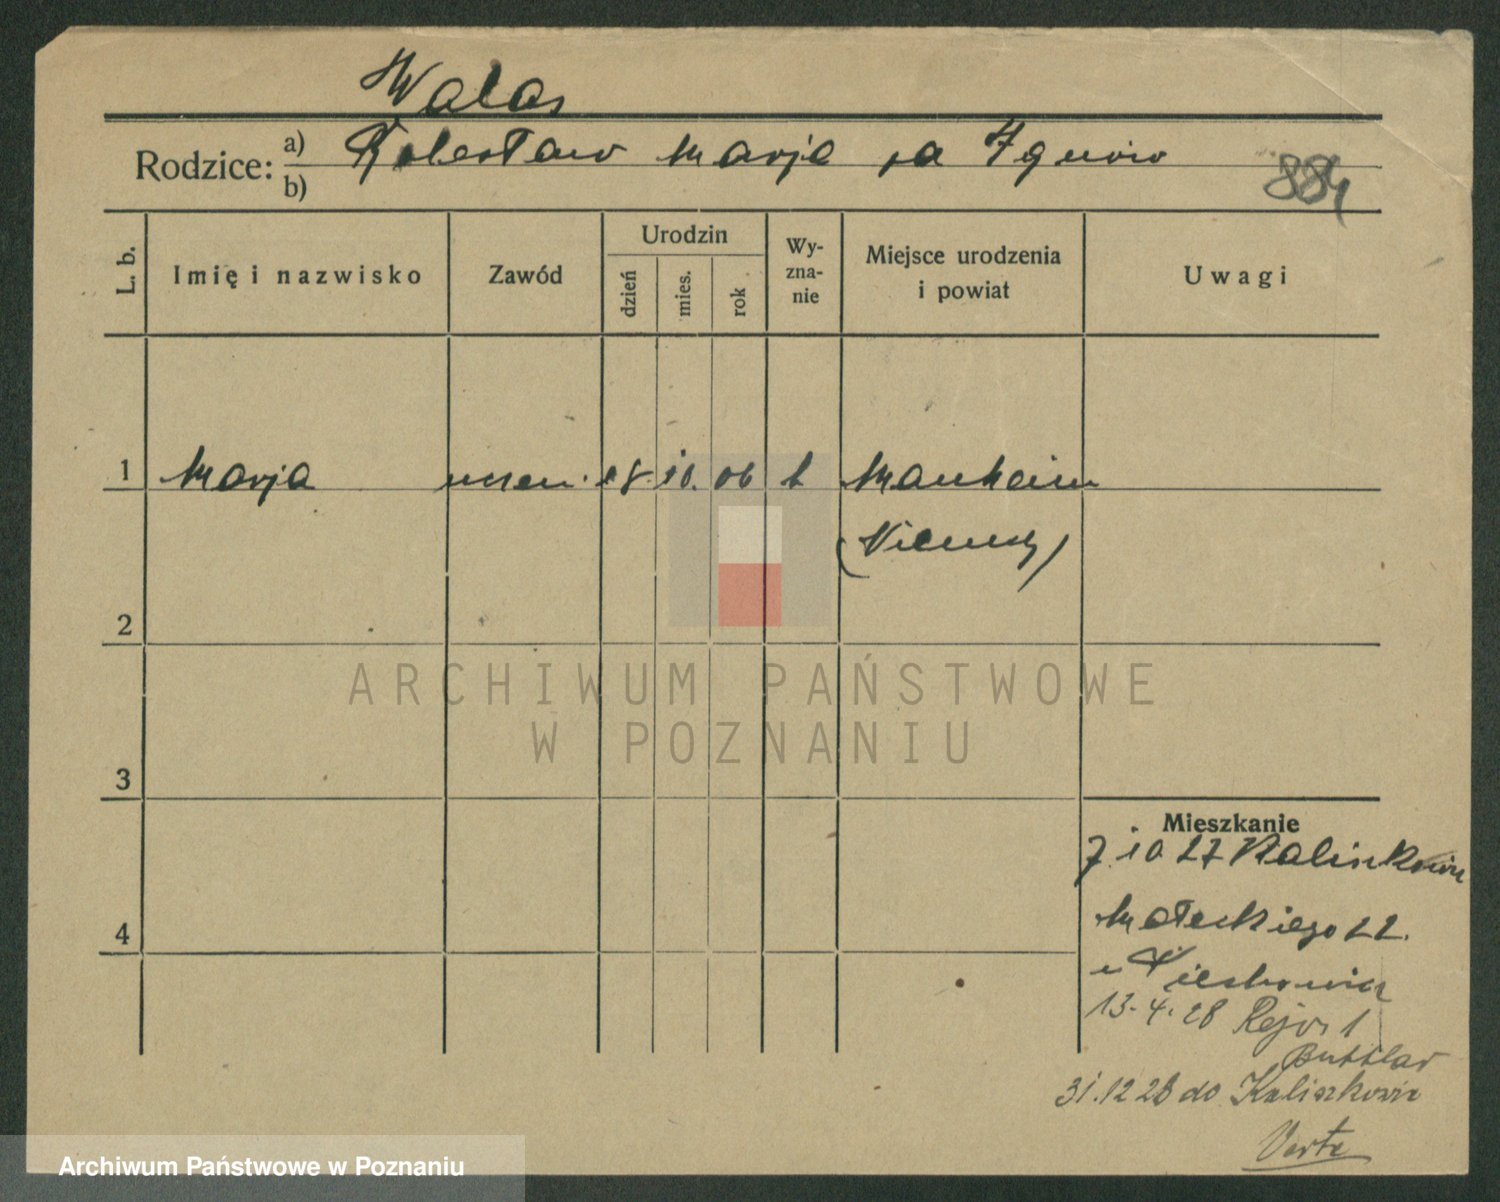 Walas
Rodzice: a) Bolesław Marja
b)
884
L. b.
Imię i nazwisko
Zawód
Urodzin
dzień
mies.
rok
Wy-
zna-
nie
Miejsce urodzenia
i powiat
Uwagi
1 Marja uczen. 18. 10. 06 k Manheim
(Niemcy)
2
3
4
ARCHIWUM PAŃSTWOWE
W POZNANIU
Mieszkanie
7.10 27
Małeckiego 22.
u
13.4.28 Reja 1
Buttlar
31.12 28 do Kaliszkowic
Verte
Archiwum Państwowe w Poznaniu